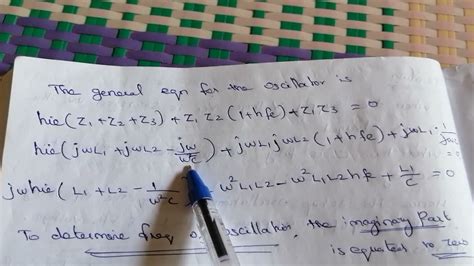 The general eqn for the oscillator is
hie(Z1+Z2+Z3)+Z1Z2(1+hfe)+Z1Z3=0
hie(jωL1+jωL2-jω/ω²C)+jωL1jωL2(1+hfe)+jωL1.1/jωc
jωhie(L1+L2-1/ω²C ω²L1L2-ω²L1L2hfe+L1/C=0
To determine freq oscillation, the imaginary part
is equated to zero